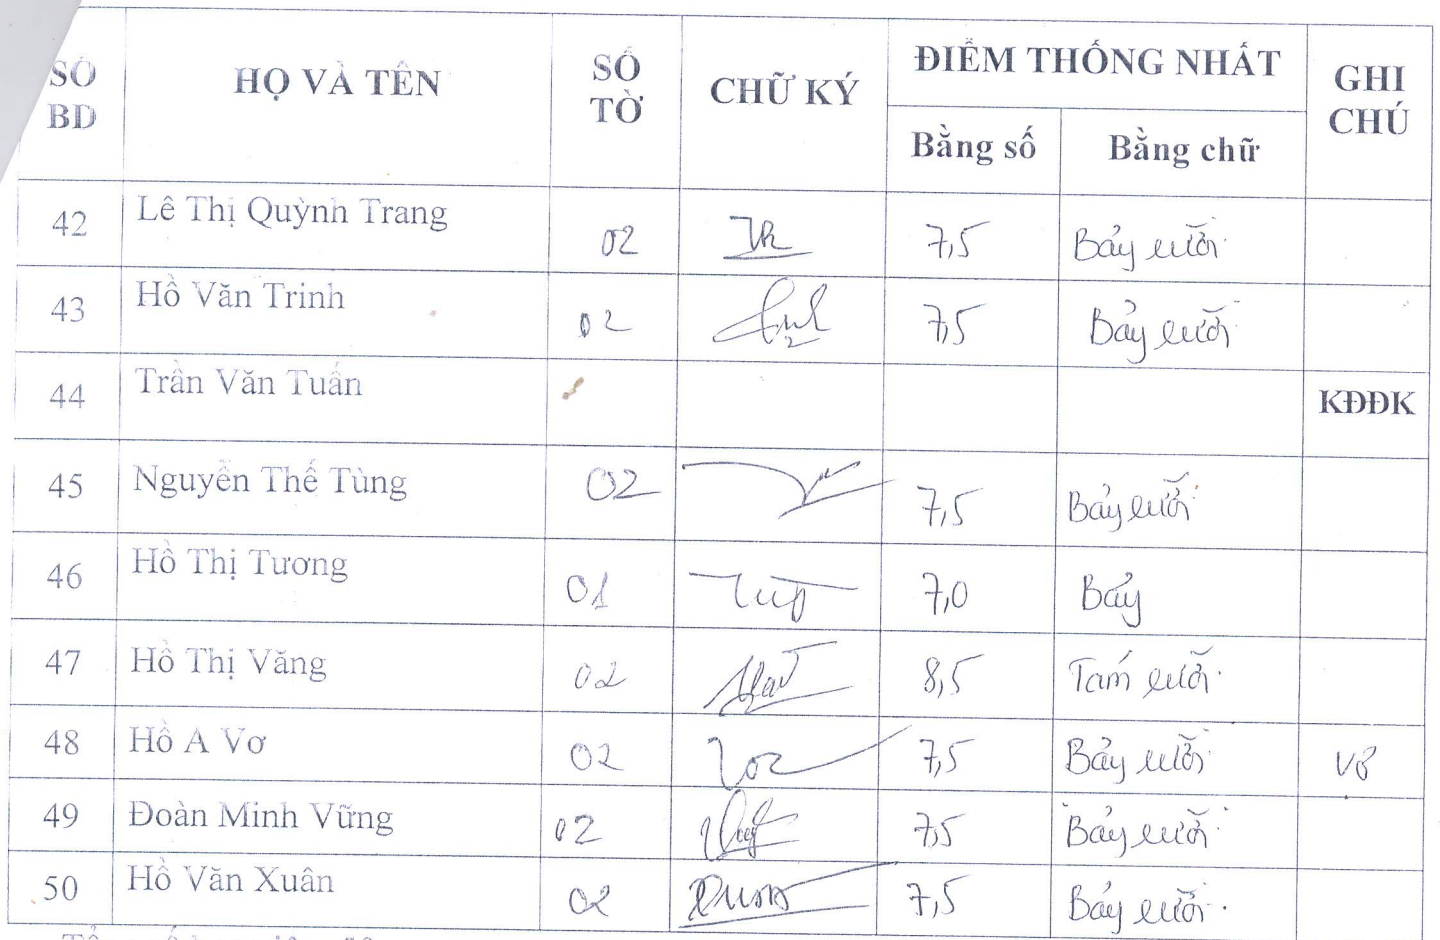 SỐ BD HỌ VÀ TÊN SỐ TỜ CHỮ KÝ ĐIỂM THỐNG NHẤT GHI CHÚ
Bằng số Bằng chữ
42 Lê Thị Quỳnh Trang 02 7,5 Bảy rưỡi
43 Hồ Văn Trinh 02 7,5 Bảy rưỡi
44 Trần Văn Tuấn KĐĐK
45 Nguyễn Thế Tùng 02 7,5 Bảy rưỡi
46 Hồ Thị Tương 01 7,0 Bảy
47 Hồ Thị Văng 02 8,5 Tám rưỡi
48 Hồ A Vơ 02 7,5 Bảy rưỡi
49 Đoàn Minh Vững 02 7,5 Bảy rưỡi
50 Hồ Văn Xuân 02 7,5 Bảy rưỡi